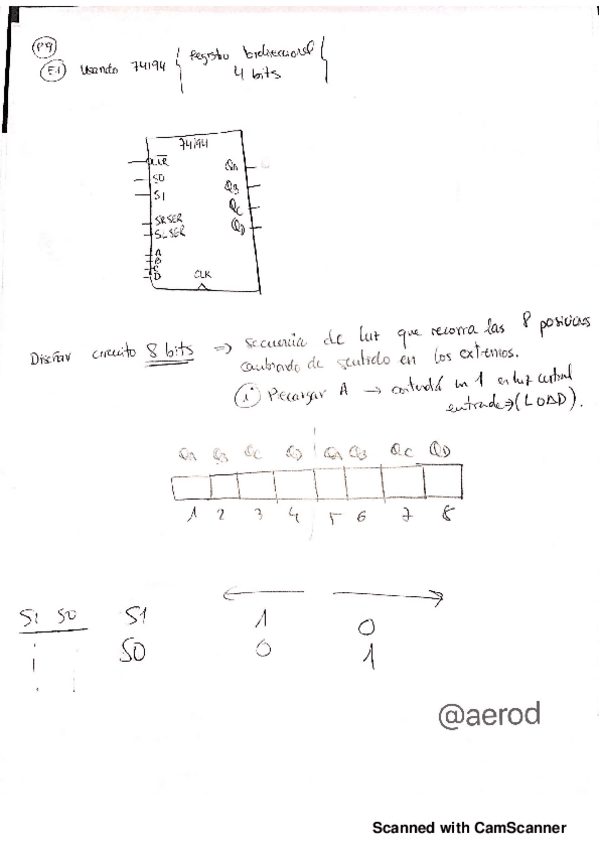 P9
E.1 Usando 74194 { registro bidireccional
4 bits {
74194
CLR QA
S0 QB
S1 QC
SRSER QD
SLSER
A
B
C
D CLK
Diseñar circuito 8 bits => secuencia de luz que recorra las 8 posiciones
cambiando de sentido en los extremos.
i Precargar A → un 1 en luz central
entrada → (LOAD).
QA QB QC QD QA QB QC QD
1 2 3 4 5 6 7 8
S1 S0 S1 1 0
S0 0 1
@aerod
Scanned with CamScanner